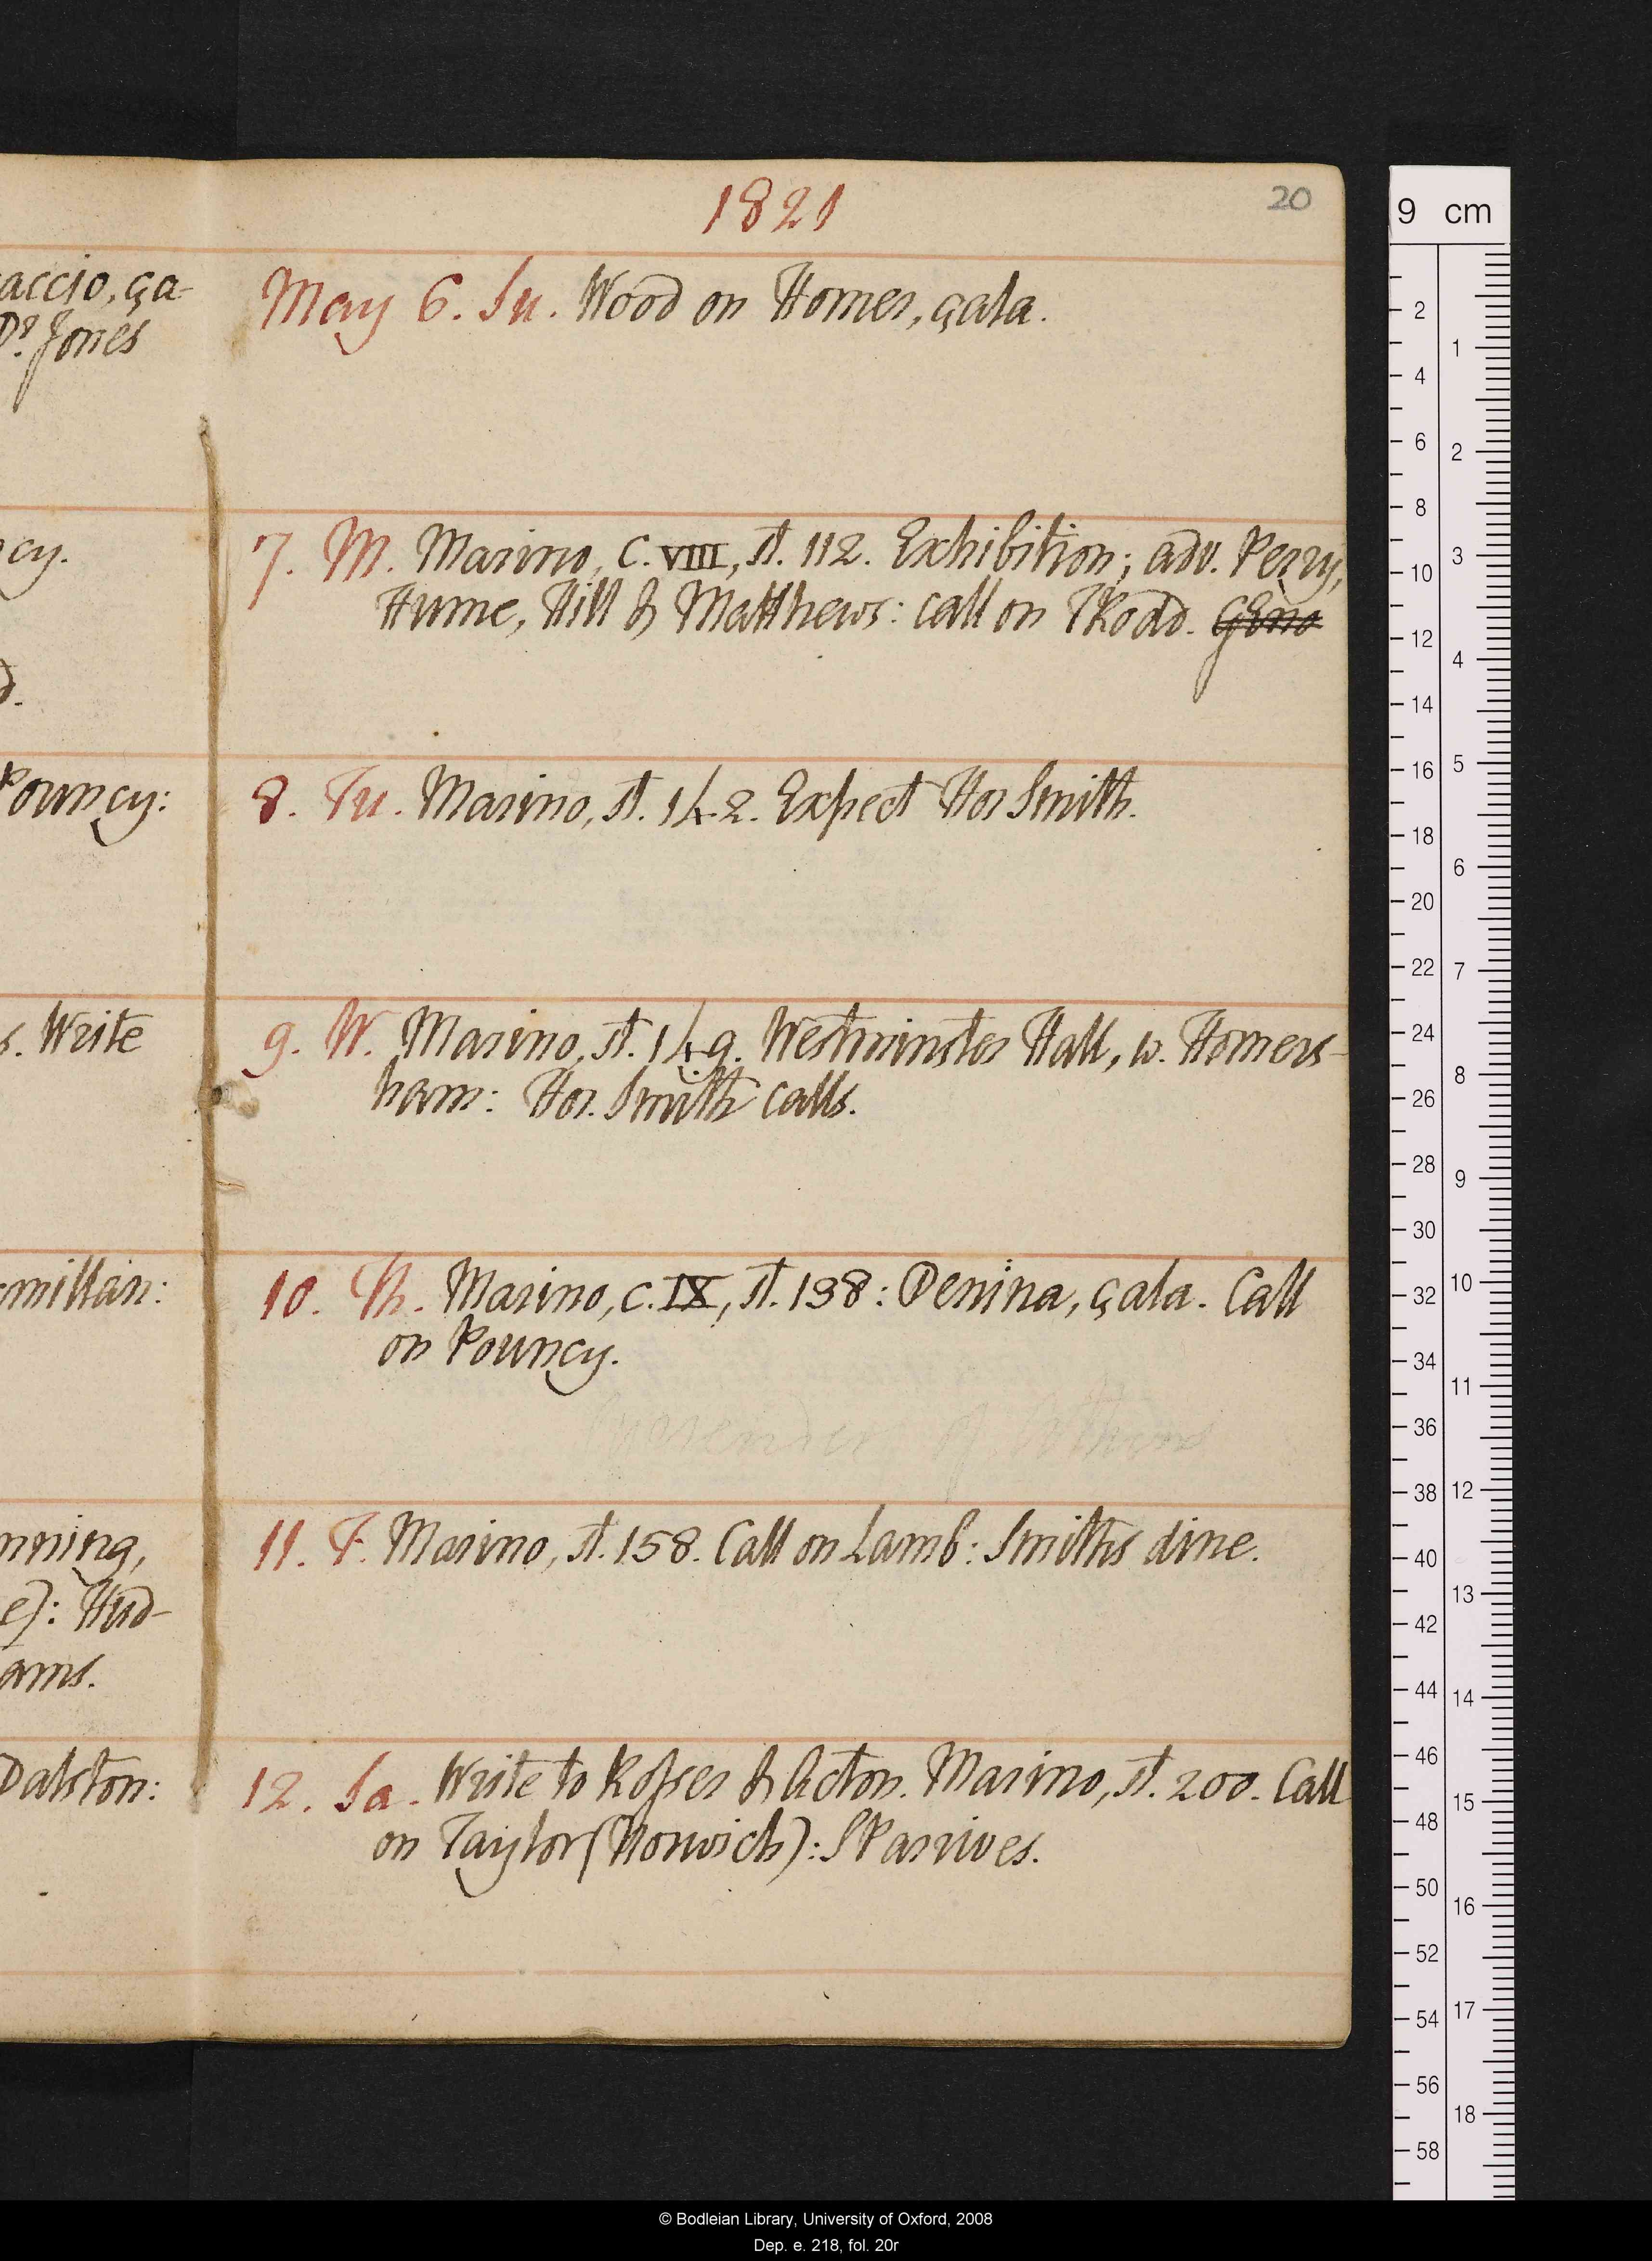 1821
20
accio, ça-
Dr. Jones
May 6. Su. Wood on Homer, çala.
cy.
7. M. Marino, C. VIII, st. 112. Exhibition; adv. Perry,
Hume, Hill & Matthews: call on TRodd.
d.
Pouncy:
8. Tu. Marino, st. 142. Expect Hor Smith.
s. Write
9. W. Marino, st. 149. Westminster Hall, w. Homers-
ham: Hor. Smith calls.
millan:
10. Th. Marino, C. IX, st. 138: Denina, çala. Call
on Pouncy.
of Athens
nning,
11. F. Marino, st. 158. Call on Lamb: Smiths dine.
e): Hud-
ams.
Dalston:
12. Sa. Write to Rosser & Acton. Marino, st. 200. Call
on Taylor (Norwich): SP arrives.
9 cm
2
4
6
8
10
12
14
16
18
20
22
24
26
28
30
32
34
36
38
40
42
44
46
48
50
52
54
56
58
1
2
3
4
5
6
7
8
9
10
11
12
13
14
15
16
17
18
© Bodleian Library, University of Oxford, 2008
Dep. e. 218, fol. 20r